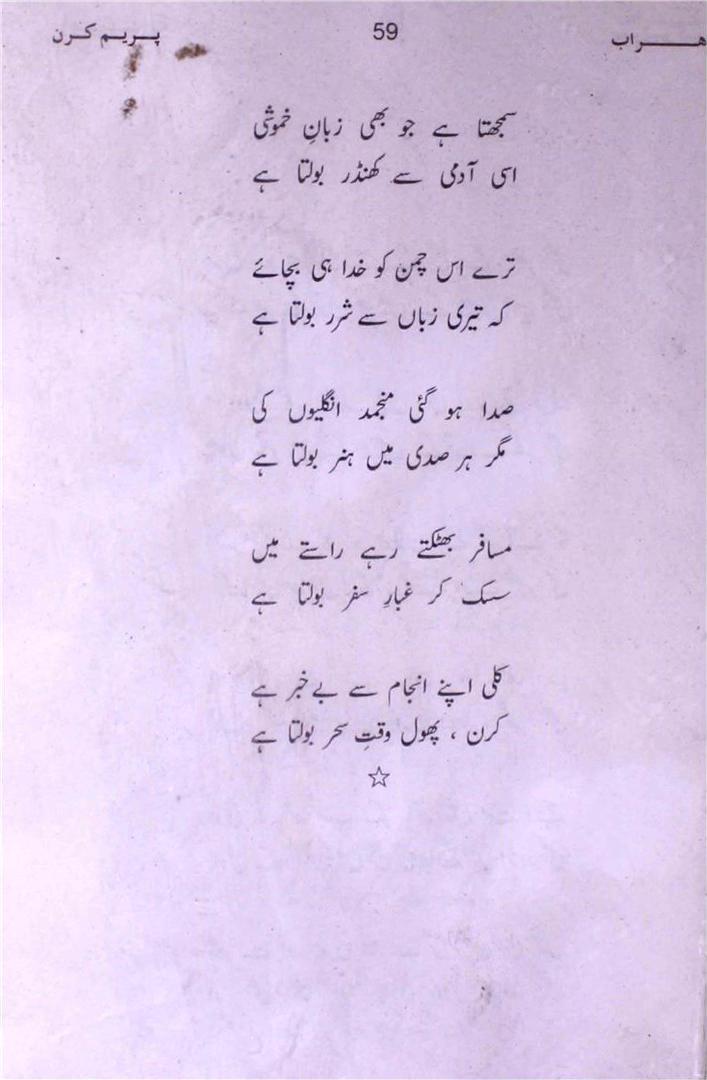 ھـــراب 59 پـریـم کـرن
سمجھتا ہے جو بھی زبانِ خموشی
اسی آدمی سے کھنڈر بولتا ہے
ترے اس چمن کو خدا ہی بچائے
کہ تیری زباں سے شرر بولتا ہے
صدا ہو گئی منجمد انگلیوں کی
مگر ہر صدی میں ہنر بولتا ہے
مسافر بھٹکتے رہے راستے میں
سسک کر غبارِ سفر بولتا ہے
کلی اپنے انجام سے بے خبر ہے
کرن ، پھول وقتِ سحر بولتا ہے